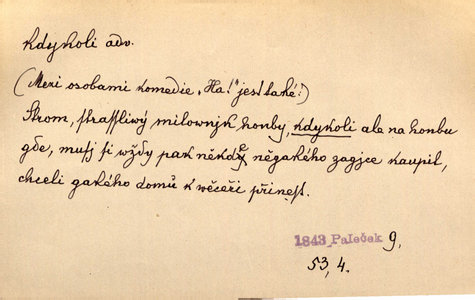 kdykoli adv.
(Mezi osobami komedie „Ha!" jest také:)
Strom, straffliwý milownjk honby, kdykoli ale na honbu
gde, musj si wždy pak někde něgakého zagjce kaupit,
chceli gakého domů k wečeři přinest.
1843 Paleček 9,
53, 4.